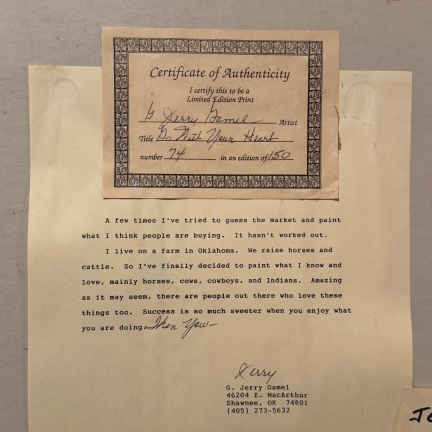 Certificate of Authenticity
I certify this to be a
Limited Edition Print
G Jerry Gamel Artist
Title Go With Your Heart
number 74 in an edition of 150
A few times I've tried to guess the market and paint
what I think people are buying. It hasn't worked out.
I live on a farm in Oklahoma. We raise horses and
cattle. So I've finally decided to paint what I know and
love, mainly horses, cows, cowboys, and Indians. Amazing
as it may seem, there are people out there who love these
things too. Success is so much sweeter when you enjoy what
you are doing. Thank You
Jerry
G. Jerry Gamel
46204 E. MacArthur
Shawnee, OK 74801
(405) 273-5632